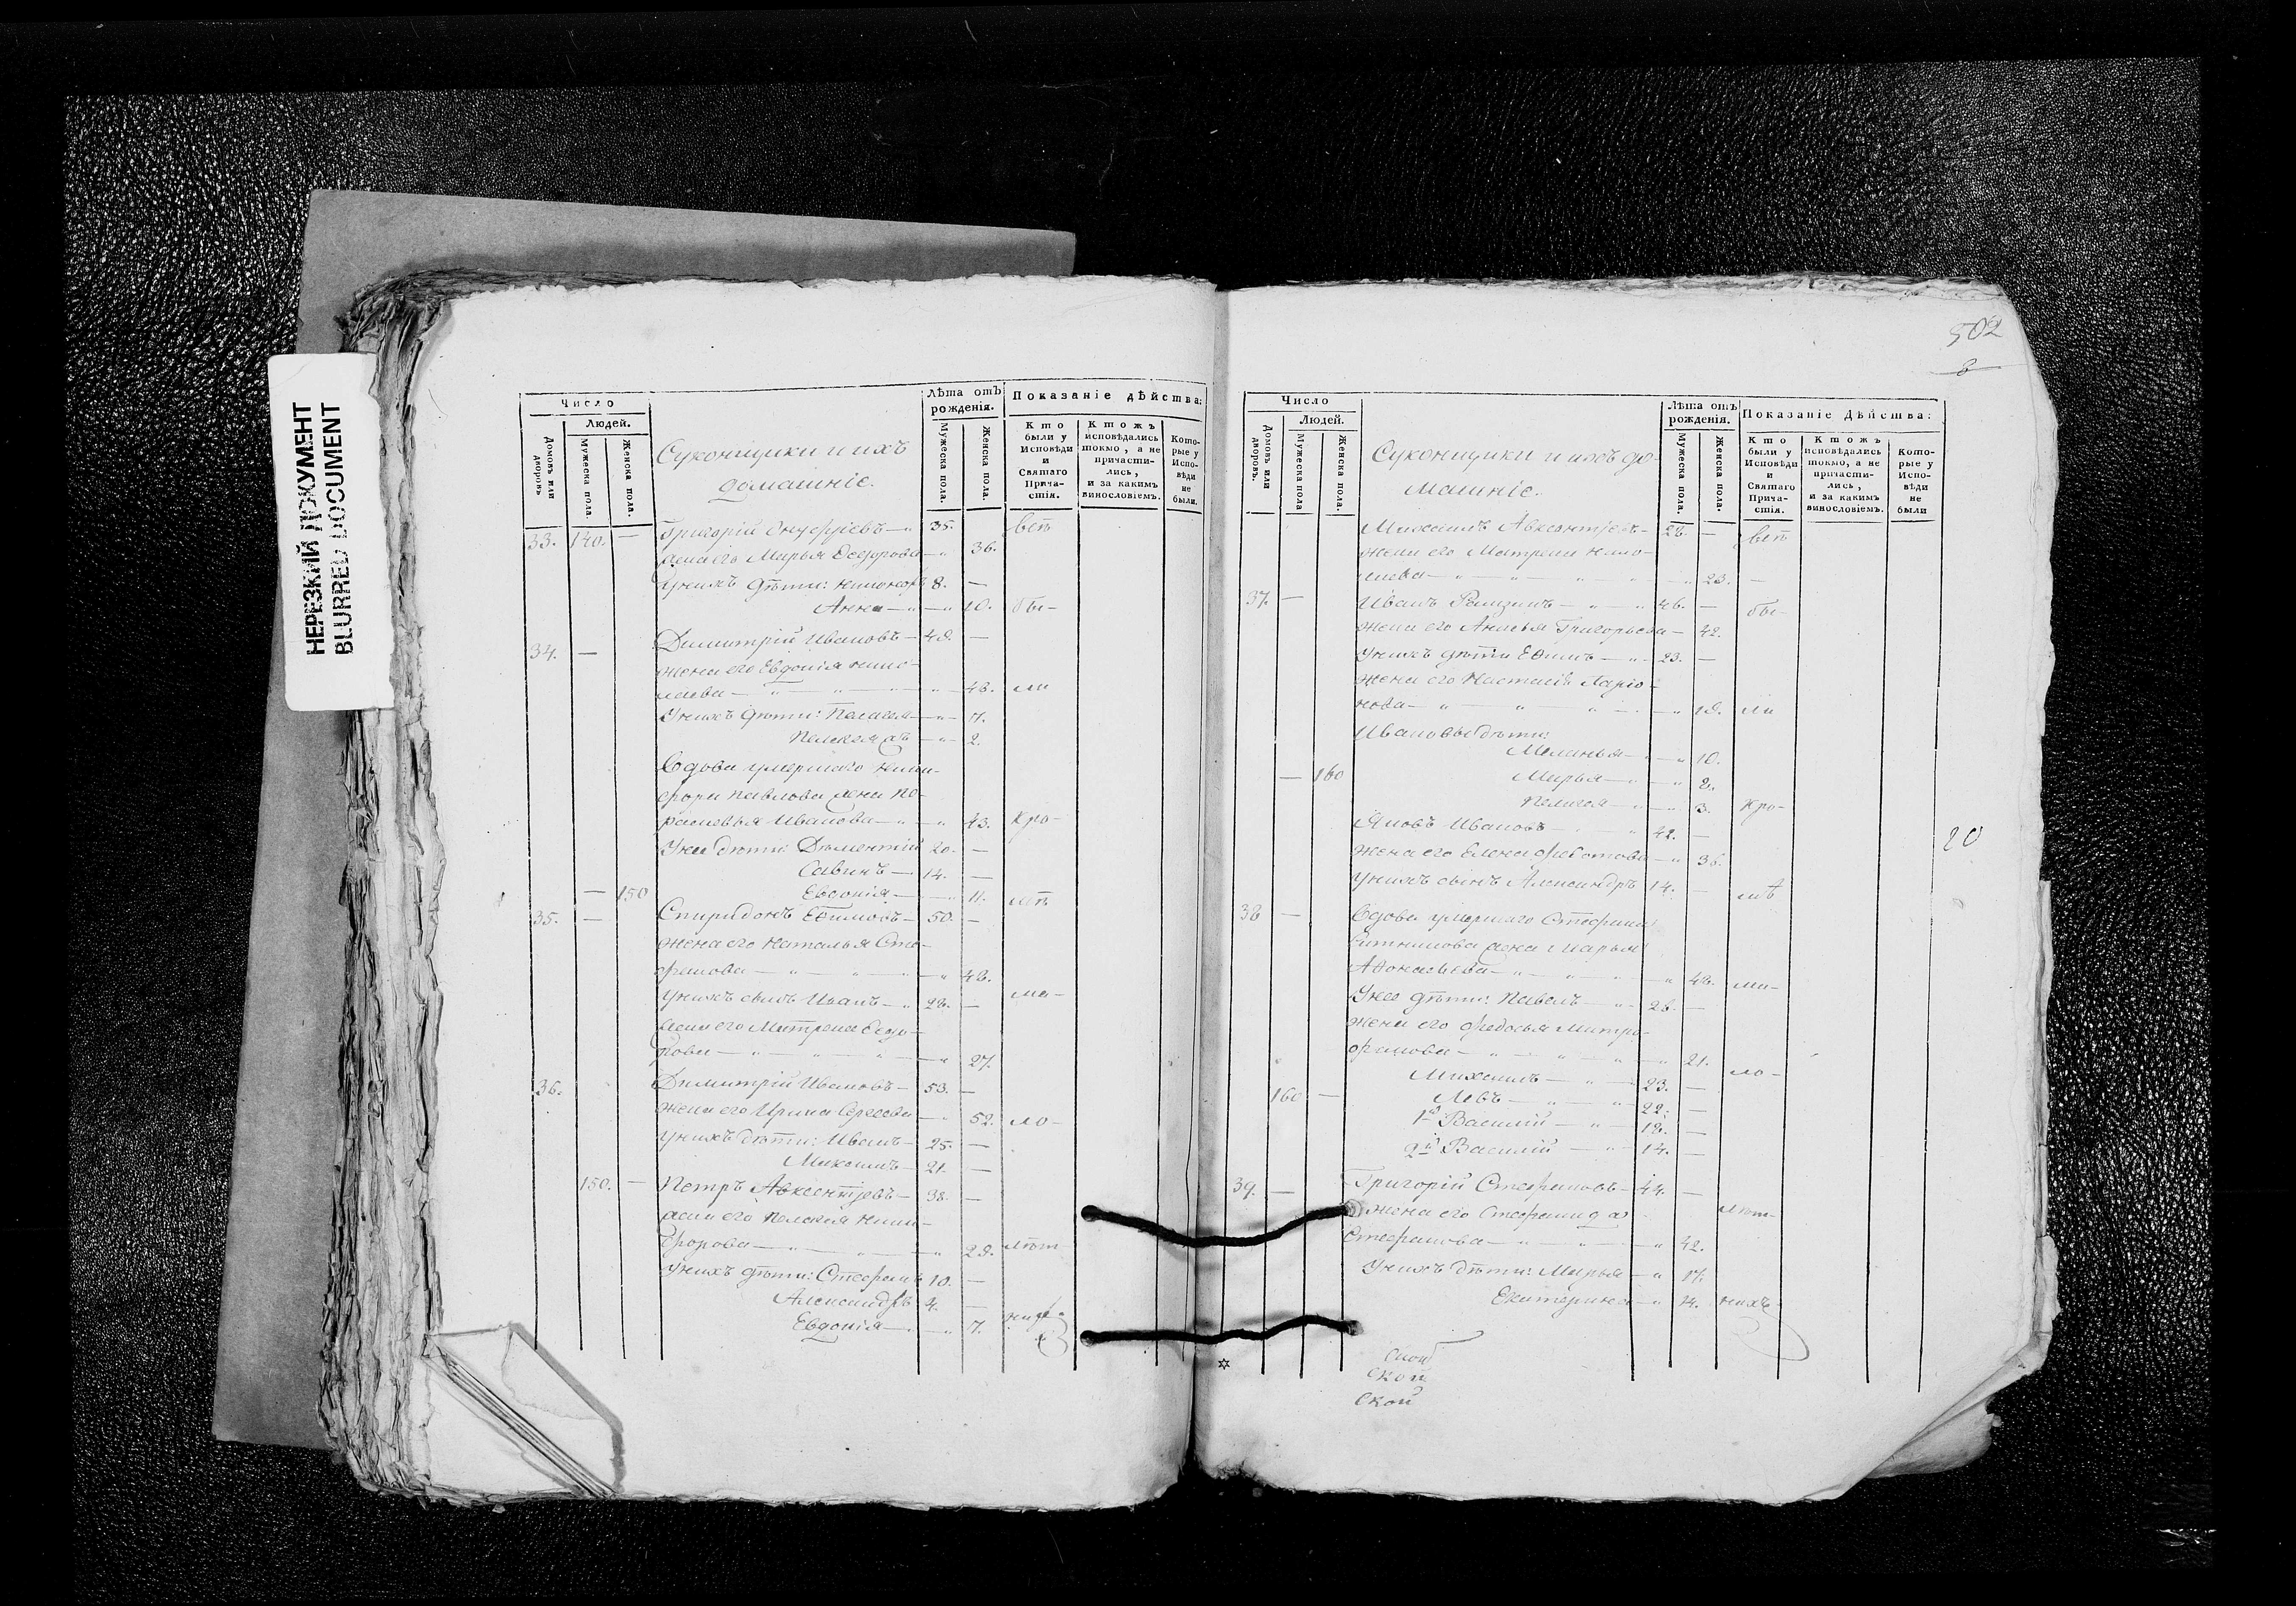 НЕРЕЗКИЙ ДОКУМЕНТ
BLURRED DOCUMENT
Число
Людей.
Домовъ или дворовъ
Мужеска пола.
Женска пола.
Суконщики и ихъ
домашніе.
Лѣта отъ рожденія.
Мужеска пола.
Женска пола.
Показаніе дѣйства:
Кто были у Исповѣди и Святаго Прича- стія.
Ктожъ исповѣдались токмо, а не причасти- лись, и за какимъ винословіемъ.
Кото- рые у Испо- вѣди не были.
33. 140. — Григорій Онуфріевъ — 35.
жена его Марья Ѳедорова — 36.
Унихъ дѣти: Никоноръ 8. —
Анна — 10. бы-
34. — Димитрій Ивановъ — 49. —
жена его Евдокія Нико-
лаева — 48. ли
Унихъ дѣти: Пелагея — 7.
2.
Вдова умершаго Ники-
фора Павлова жена Па-
расковья Иванова — 43. Кро-
Унея дѣти: Дементій 20. —
Савинъ — 14. —
— 150 Евдокія — 11. мѣ
35. — Спиридонъ Еѳимовъ — 50. —
жена его Наталья Сте-
фанова — 48.
Унихъ сынъ Иванъ — 28. — ма-
жена его Матрена Ѳедо-
рова — 27.
36. Димитрій Ивановъ — 53. —
жена его Ирина Сергеева — 52. ло-
Унихъ дѣти: Иванъ — 25. —
Михаилъ — 21. —
150. — Петръ Авксентіевъ — 38. —
жена его Пелагея Ники-
форова — 29. лѣт-
Унихъ дѣти: Стефанъ 10. —
Александръ 4. —
Евдокія — 7.
502
Число
Людей.
Домовъ или дворовъ.
Мужеска пола
Женска пола.
Суконщики и ихъ до-
машніе.
Лѣта отъ рожденія.
Мужеска пола.
Женска пола.
Показаніе Дѣйства:
Кто были у Исповѣди и Святаго Прича- стія.
Ктожъ исповѣдались токмо, а не причасти- лись, и за какимъ винословіемъ.
Кото- рые у Испо- вѣди не были
Михаилъ Авксентіевъ — 28. —
жена его Матрена Нико-
лаева — 23. —
37. — Иванъ — 46. — бы-
жена его Анисья Григорьева — 42.
Унихъ дѣти Еѳимъ — 23. —
жена его Настасія Ларіо-
нова — 19. ли
Ивановы дѣти:
Меланья — 10.
— 160 Марья —
Пелагея — 3. Кро-
Яковъ Ивановъ — 42. —
жена его Елена Ѳедотова — 36.
20
Унихъ сынъ Александръ 14. — мѣ
38 — Вдова умершаго Стефана
жена Марья
Аѳонасьева — 48. ма-
Унея дѣти: Павелъ — 28. —
жена его Федосья Митро-
фанова — 21. ло-
Михаилъ — 23. —
160 — Левъ — 22. —
1й Василій — 18. —
2й Василій — 14. —
39. — Григорій Стефановъ — 44. —
жена его Стефанида лѣт-
Стефанова — 42.
Унихъ дѣти: Марья — 17.
Екатерина — 14. нихъ
Ской
Ской
Ской